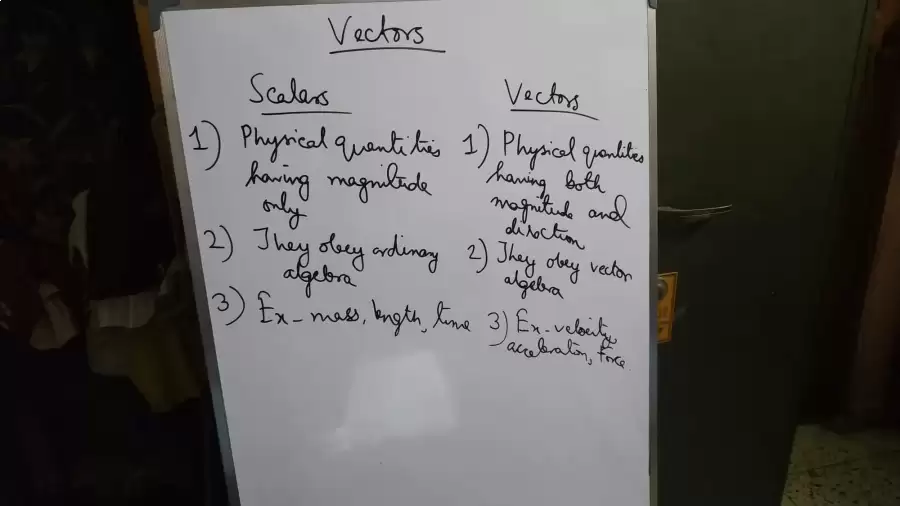 Vectors
Scalars
1) Physical quantities
having magnitude
only
2) They obey ordinary
algebra
3) Ex - mass, length, time
Vectors
1) Physical quantities
having both
magnitude and
direction
2) They obey vector
algebra
3) Ex - velocity,
acceleration, force